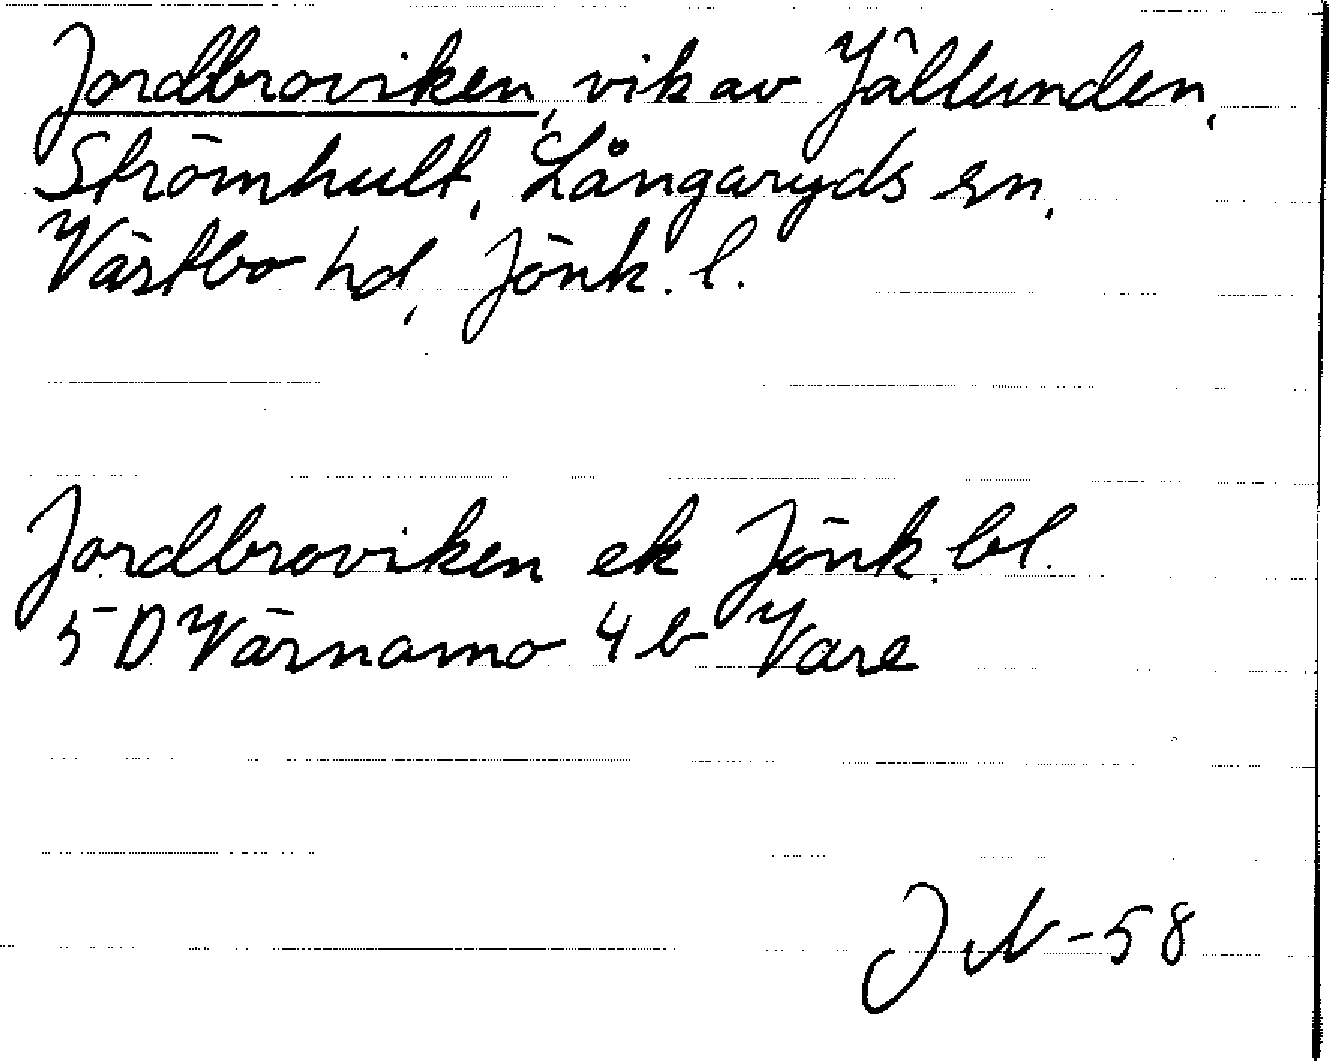 Jordbroviken, vik av Jällunden,
Strömhult, Långaryds sn,
Västbo hd, Jönk. l.
Jordbroviken ek Jönk. bl.
5 D Värnamo 4 b Vare
JN-58